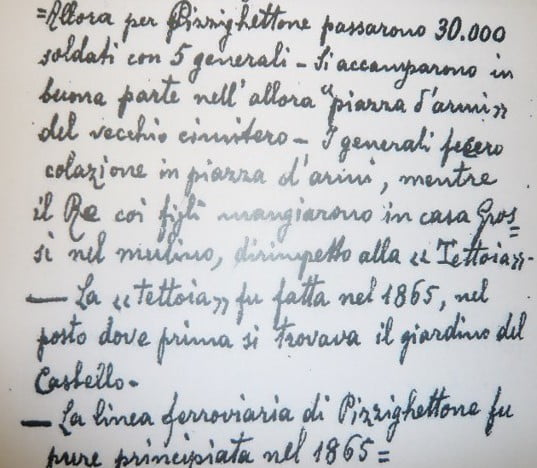 =Allora per Pizzighettone passarono 30.000
soldati con 5 generali - Si accamparono in
buona parte nell'allora "piazza d'armi"
del vecchio cimitero - I generali fecero
colazione in piazza d'armi, mentre
il Re coi figli mangiarono in casa Gros=
si nel mulino, dirimpetto alla «Tettoia»-
— La «tettoia» fu fatta nel 1865, nel
posto dove prima si trovava il giardino del
Castello-
— La linea ferroviaria di Pizzighettone fu
pure principiata nel 1865=